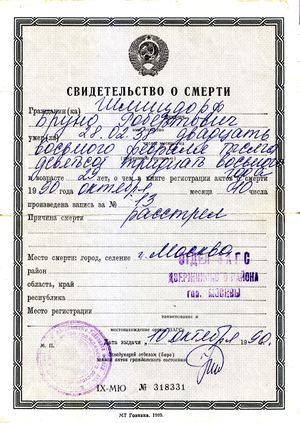 СВИДЕТЕЛЬСТВО О СМЕРТИ
Гражданин(ка) Шмицдорф
Бруно Робертович
умер(ла) 28.02.38 двадцать
восьмого февраля тысяча
девятьсот тридцать восьмого года
в возрасте 29 лет, о чем в книге регистрации актов о смерти
1990 года октября месяца 10 числа
произведена запись за № 13
Причина смерти расстрел
Место смерти: город, селение г. Москва
район
область, край
республика
ОТДЕЛ ЗАГС
ДЗЕРЖИНСКОГО РАЙОНА
гор. МОСКВЫ
Место регистрации
наименование и
местонахождение органа ЗАГСа
Дата выдачи 10 октября 1990.
М. П.
Заведующий отделом (бюро)
записи актов гражданского состояния
IX-МЮ № 318331
МТ Гознака. 1989.